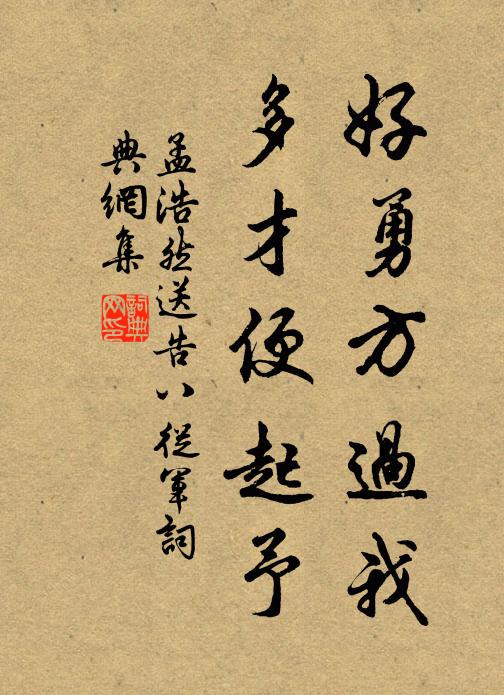 好勇方過我
多才便起予
孟浩然送告八從軍詞
典網集
詞典網印